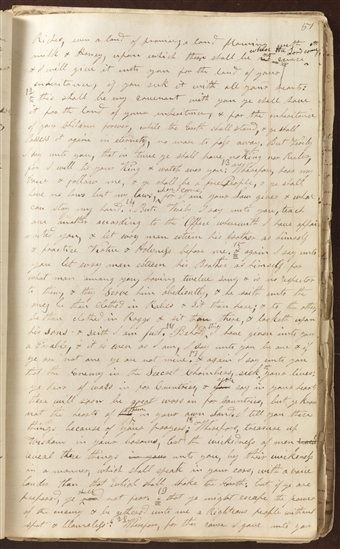 51
Riches, even a land of promise, a land flowing with
milk & Honey, upon which there shall be no curse when the Lord cometh
& I will give it unto you for the land of your
inheritance, if you seek it with all your hearts
& this shall be my covenant with you ye shall have
it for the land of your inheritance, & for the inheritance
of your Children forever, while the Earth shall stand, & ye shall
possess it again in eternity, no more to pass away. But Verily
I say unto you, that in time ye shall have no King nor Ruler
for I will be your King & watch over you. Wherefore, hear my
Voice & follow me, & ye shall be a free People, & ye shall
have no laws but my laws, for I am your Law giver & what
can stay my hand. But Verily I say unto you, teach
one another according to the Office wherewith I have appointed
you, & let every man esteem his brother as himself
& practice Virtue & Holiness before me & again I say unto
you let every man esteem his Brother as himself for
what man among you having twelve sons & is no respecter
to them, & they serve him obediently, & he saith unto the
one be thou clothed in Robes & sit thou here; & to the other
be thou clothed in Rags & sit thou there, & looketh upon
his sons & saith I am just. Behold, I have given unto you
a Parable, & it is even as I am, I say unto you be one & if
ye are not one, ye are not mine. & again I say unto you
that the Enemy in the Secret Chambers, seeketh your lives:
ye hear of wars in far Countries, & you say in your heart
there will soon be great wars in far countries, but ye know
not the hearts of them in your own Land. I tell you these
things because of your prayers; Wherefore, treasure up
Wisdom in your bosoms, lest the wickedness of men
reveal these things unto you, by their wickedness
in a manner, which shall speak in your ears, with a voice
louder than that which shall shake the Earth: but if ye are
prepared, ye shall not fear. & that ye might escape the power
of the enemy & be gathered unto me a Righteous people without
spot & blameless: Wherefore, for this cause I gave unto you